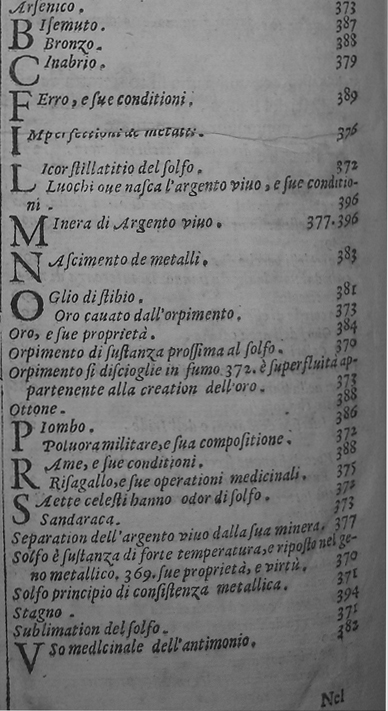 Arsenico. 373
BIsemuto. 387
Bronzo. 388
CInabrio. 379
FErro, e sue conditioni. 389
IMperfettioni de metalli. 376
LIcor stillatitio del solfo. 372
Luochi oue nasca l'argento viuo, e sue conditio-
ni. 396
MInera di Argento viuo. 377.396
NAscimento de metalli. 383
OGlio di stibio. 381
Oro cauato dall'orpimento. 373
Oro, e sue proprietà. 384
Orpimento di sustanza prossima al solfo. 370
Orpimento si discioglie in fumo. 372. è superfluità ap-
partenente alla creation dell'oro. 373
Ottone. 388
PIombo. 386
Poluora militare, e sua compositione. 372
RAme, e sue conditioni. 388
Risagallo, e sue operationi medicinali. 375
SAette celesti hanno odor di solfo. 372
Sandaraca. 373
Separation dell'argento viuo dalla sua minera. 377
Solfo è sustanza di forte temperatura, e riposto nel ge-
no metallico. 369. sue proprietà, e virtù. 370
Solfo principio di consistenza metallica. 371
Stagno. 394
Sublimation del solfo. 371
VSo medicinale dell'antimonio. 382
Nel